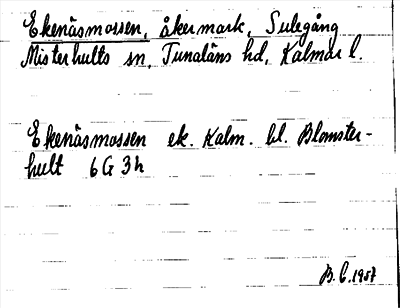 Ekenäsmossen, åkermark, Sulegång
Misterhults sn, Tunaläns hd, Kalmar l.
Ekenäsmossen ek. Kalm. bl. Blomster-
hult 6 G 3 h
B. C. 1957